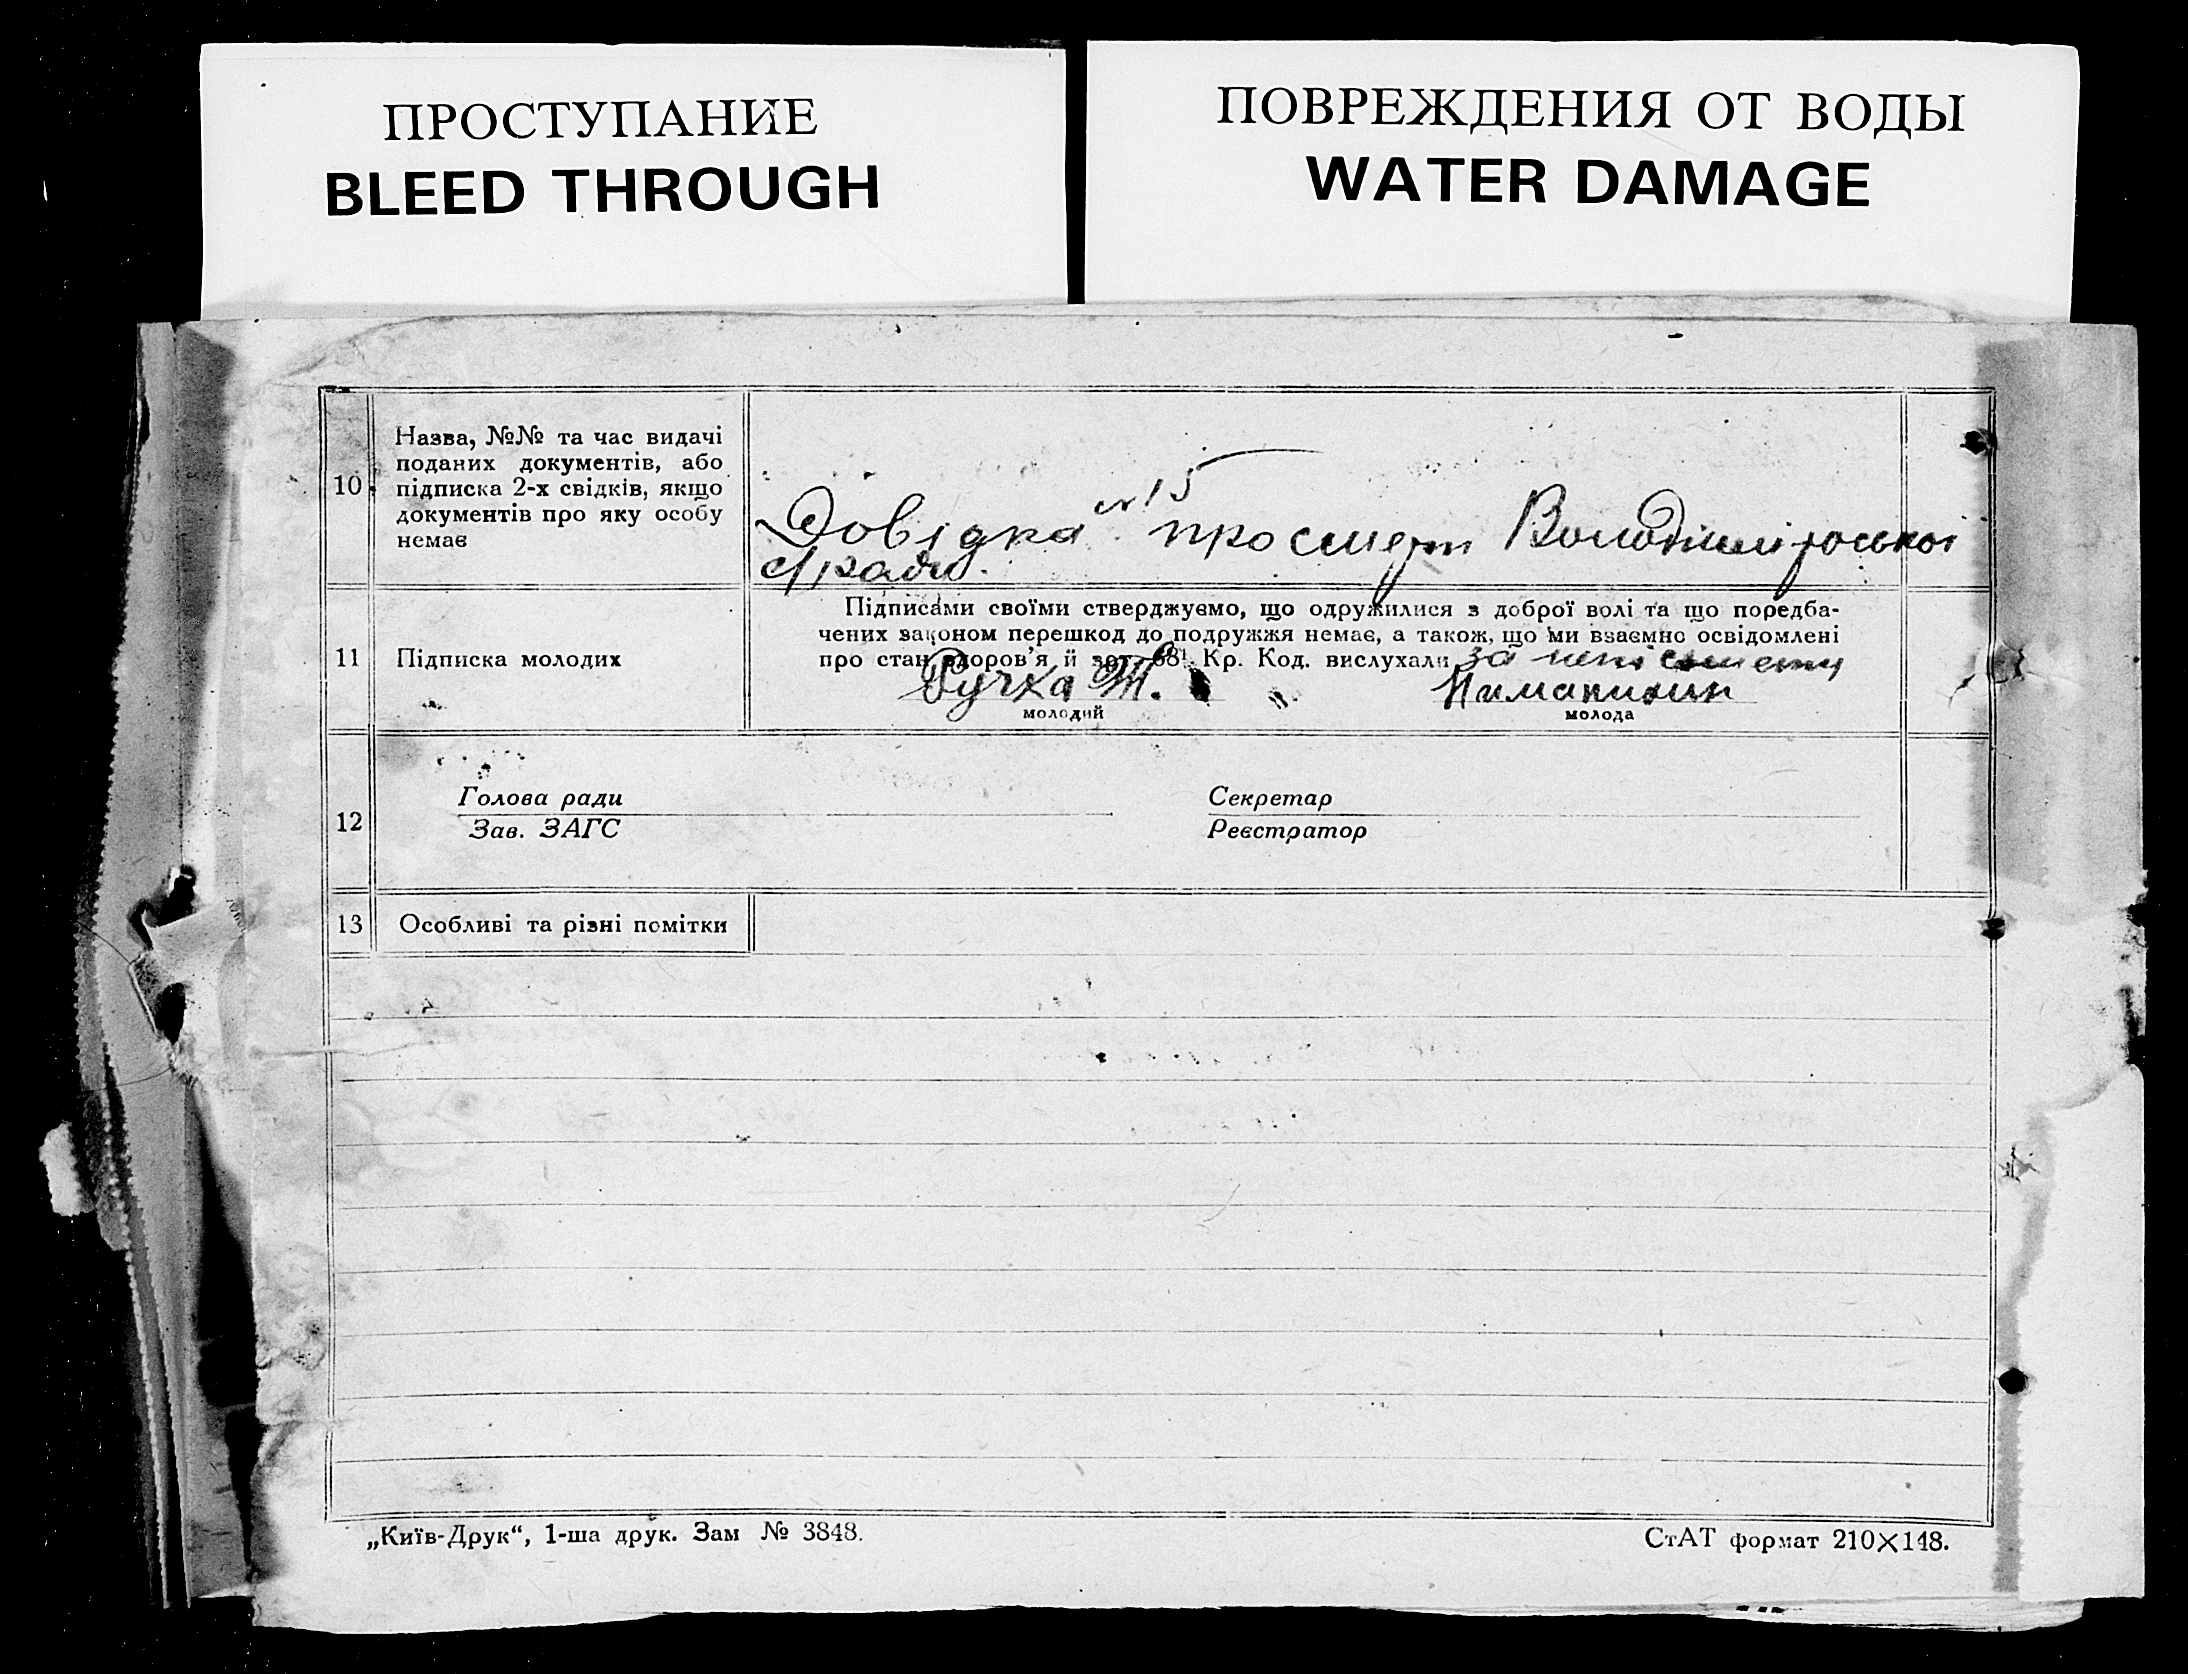 ПРОСТУПАНИЕ
BLEED THROUGH
ПОВРЕЖДЕНИЯ ОТ ВОДЫ
WATER DAMAGE
10
Назва, №№ та час видачі
поданих документів, або
підписка 2-х свідків, якщо
документів про яку особу
немає
№ 15
Довідка про смерт Володимирської
с/ради.
11
Підписка молодих
Підписами своїми стверджуємо, що одружилися з доброї волі та що передба-
чених законом перешкод до подружжя немає, а також, що ми взаємно освідомлені
про стан здоров'я й арт. 68¹ Кр. Код. вислухали за
Ручка Т.
молодий
молода
12
Голова ради
Зав. ЗАГС
Секретар
Реєстратор
13
Особливі та різні помітки
„Київ-Друк“, 1-ша друк. Зам № 3848.
СтАТ формат 210×148.